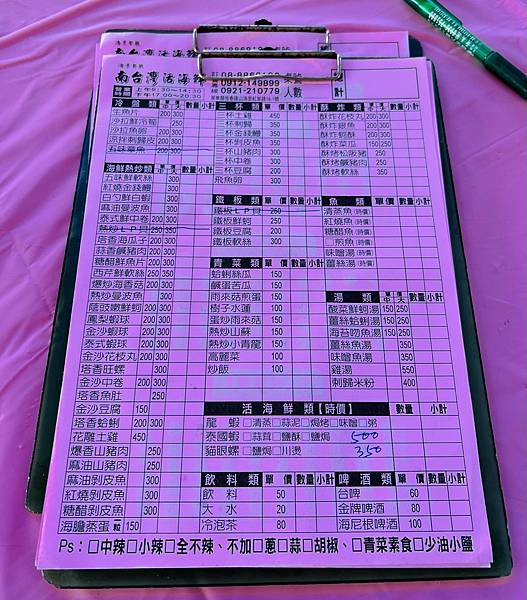 南台灣活海鮮
南台灣活海鮮
營業時間 上午9:30~14:30 下午17:00~20:30
0912-149899
0921-210779 人數 計
冷盤類 中 大 數量 小計
生魚片 200 300
沙拉鮮冷筍 250
沙拉魚卵 200 300
涼拌刺歸皮 200 300
五味章魚 300
海鮮熱炒類 中 大 數量 小計
五味鮮軟絲 300
紅燒金錢鰻 300
白勺鮮白蝦 300
麻油曼波魚 300
泰式鮮中卷 200 300
熱炒LP貝 250 350
塔香海瓜子 200 300
蒜香鹹豬肉 200 300
糖醋鮮魚片 200 300
西芹鮮軟絲 250 350
爆炒海香菇 200 300
熱炒曼波魚 300
蔭豉嫩鮮蚵 200 300
鳳梨蝦球 200 300
金沙蝦球 200 300
泰式蝦球 200 300
金沙花枝丸 200 300
塔香旺螺 300
金沙中卷 200 300
塔香魚肚 250
金沙豆腐 150
塔香蛤蜊 200 300
花雕土雞 450
爆香山豬肉 250
麻油山豬肉 250
麻油剝皮魚 300
紅燒剝皮魚 300
糖醋剝皮魚 300
海膽蒸蛋 一粒 150
三杯類 單價 數量 小計
三杯土雞 450
三杯刺歸 350
三杯金錢鰻 350
三杯剝皮魚 300
三杯山豬肉 300
三杯中卷 300
三杯豆腐 200
飛魚卵 300
鐵板類 單價 數量 小計
鐵板LP貝 250
鐵板鮮蚵 250
鐵板豆腐 200
鐵板軟絲 300
青菜類 單價 數量 小計
蛤蜊絲瓜 150
鹹蛋苦瓜 150
雨來菇煎蛋 150
樹子水蓮 100
蛋炒雨來菇 150
熱炒山蘇 150
熱炒小青龍 150
高麗菜 100
炒飯 100
酥炸類 中 大 數量 小計
酥炸花枝丸 200 300
酥炸銀魚 200 300
酥炸蚵酥 200 300
酥炸菜瓜 150 250
酥炸松阪豬 250
酥炸鹹豬肉 250
酥炸軟絲 350
魚類 單價 數量 小計
清蒸魚(時價)
紅燒魚(時價)
糖醋魚(時價)
□煎魚(時價)
味噌湯(時價)
薑絲湯(時價)
湯類 中 大 數量 小計
酸菜鮮蚵湯 150 250
薑絲蛤蜊湯 150 250
海苔吻魚湯 150 250
薑絲魚湯 350
味噌魚湯 350
雞湯 550
刺歸米粉 400
活海鮮類【時價】 數量 小計
龍蝦 □清蒸□蒜泥□焗烤□味噌□粥
泰國蝦□蒜茸□鹽酥□鹽焗 500
貓眼螺□鹽焗□川燙 350
飲料類 單價 數量 小計
飲料 50
大水 20
冷泡茶 80
啤酒類 單價 數量 小計
台啤 60
金牌啤酒 80
海尼根啤酒 100
Ps：□中辣□小辣□全不辣、不加□蔥□蒜□胡椒、□青菜素食□少油小鹽